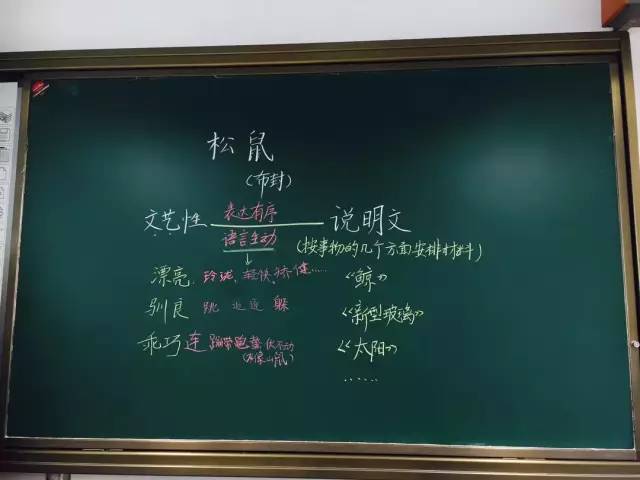 松鼠
(布封)
文艺性 表达有序 说明文
语言生动
(按事物的几个方面安排材料)
漂亮 玲珑、轻快、矫健…… 《鲸》
驯良 跳 追逐 躲 《新型玻璃》
乖巧 连蹦带跑 《太阳》
(不像山鼠)
……